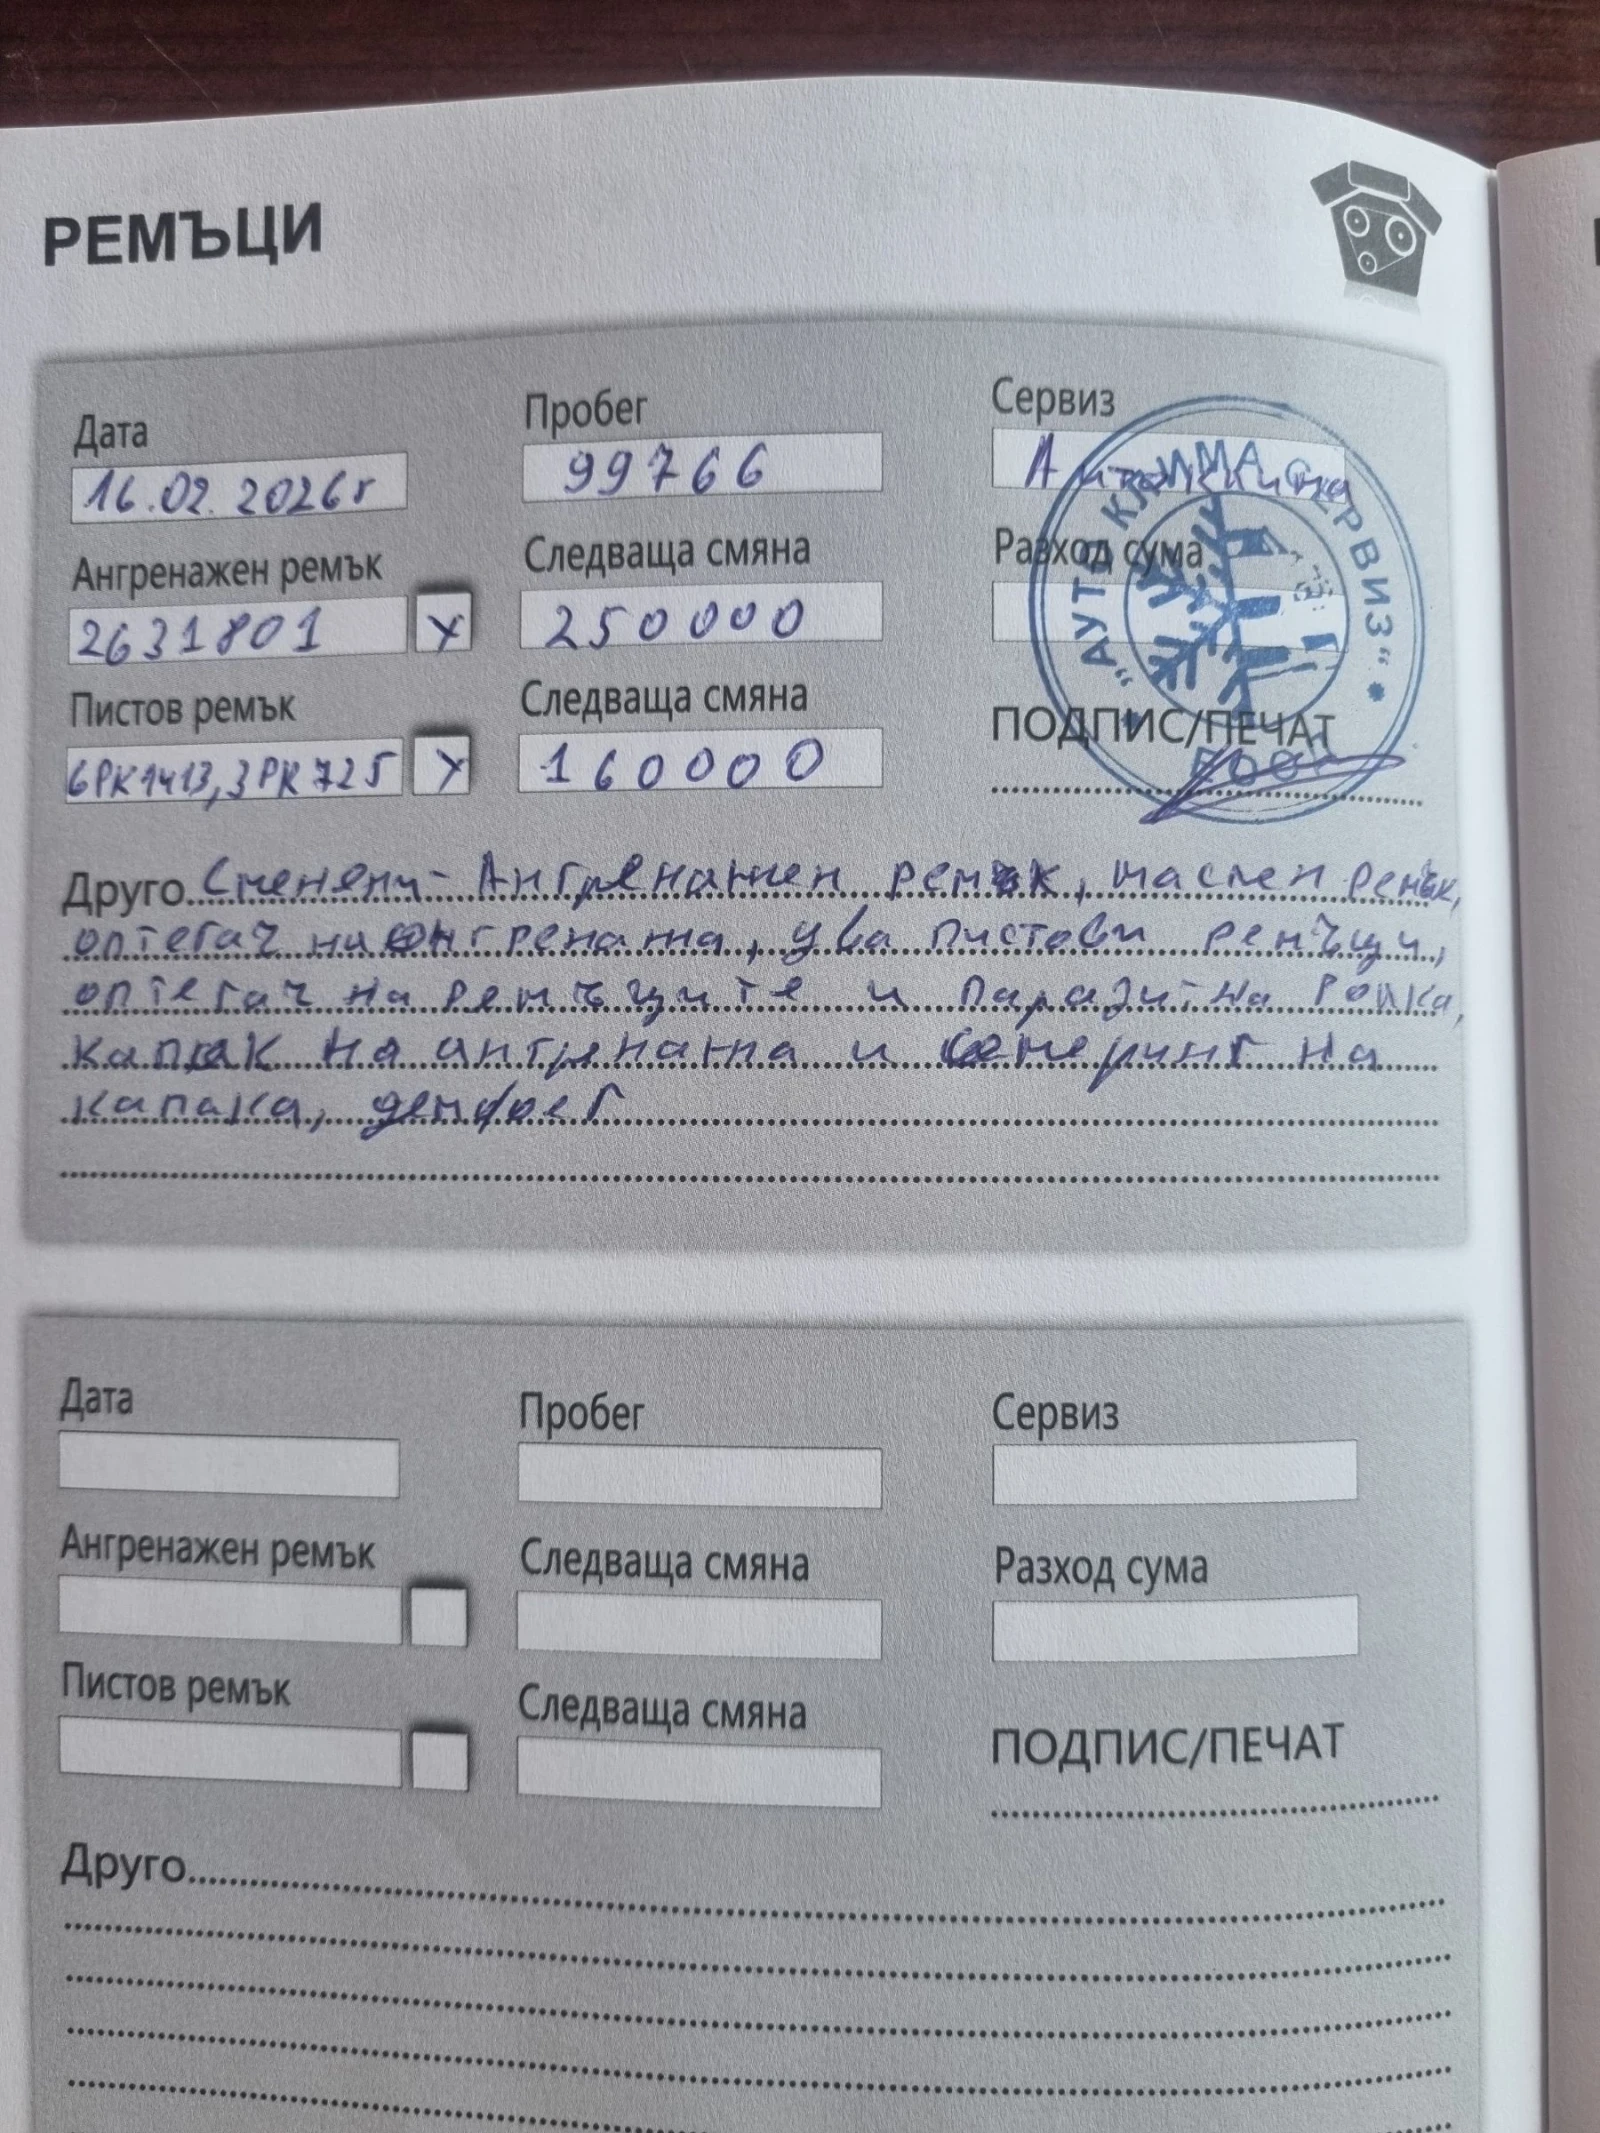 РЕМЪЦИ
Дата
Пробег
Сервиз
16.02.2026г
99766
Ангренажен ремък
Следваща смяна
Разход сума
2631801
х
250000
Пистов ремък
Следваща смяна
ПОДПИС/ПЕЧАТ
6PK1413, 3PK725
х
160000
"АУТО КЛИМА СЕРВИЗ"
ЕООД
Друго Сменени - Ангренажен ремък, маслен ремък,
оптегач на ангренажа, два пистови ремъци,
оптегач на ремъците и паразитна ролка,
капак на ангренажа и семеринг на
капака, демфер
Дата
Пробег
Сервиз
Ангренажен ремък
Следваща смяна
Разход сума
Пистов ремък
Следваща смяна
ПОДПИС/ПЕЧАТ
Друго